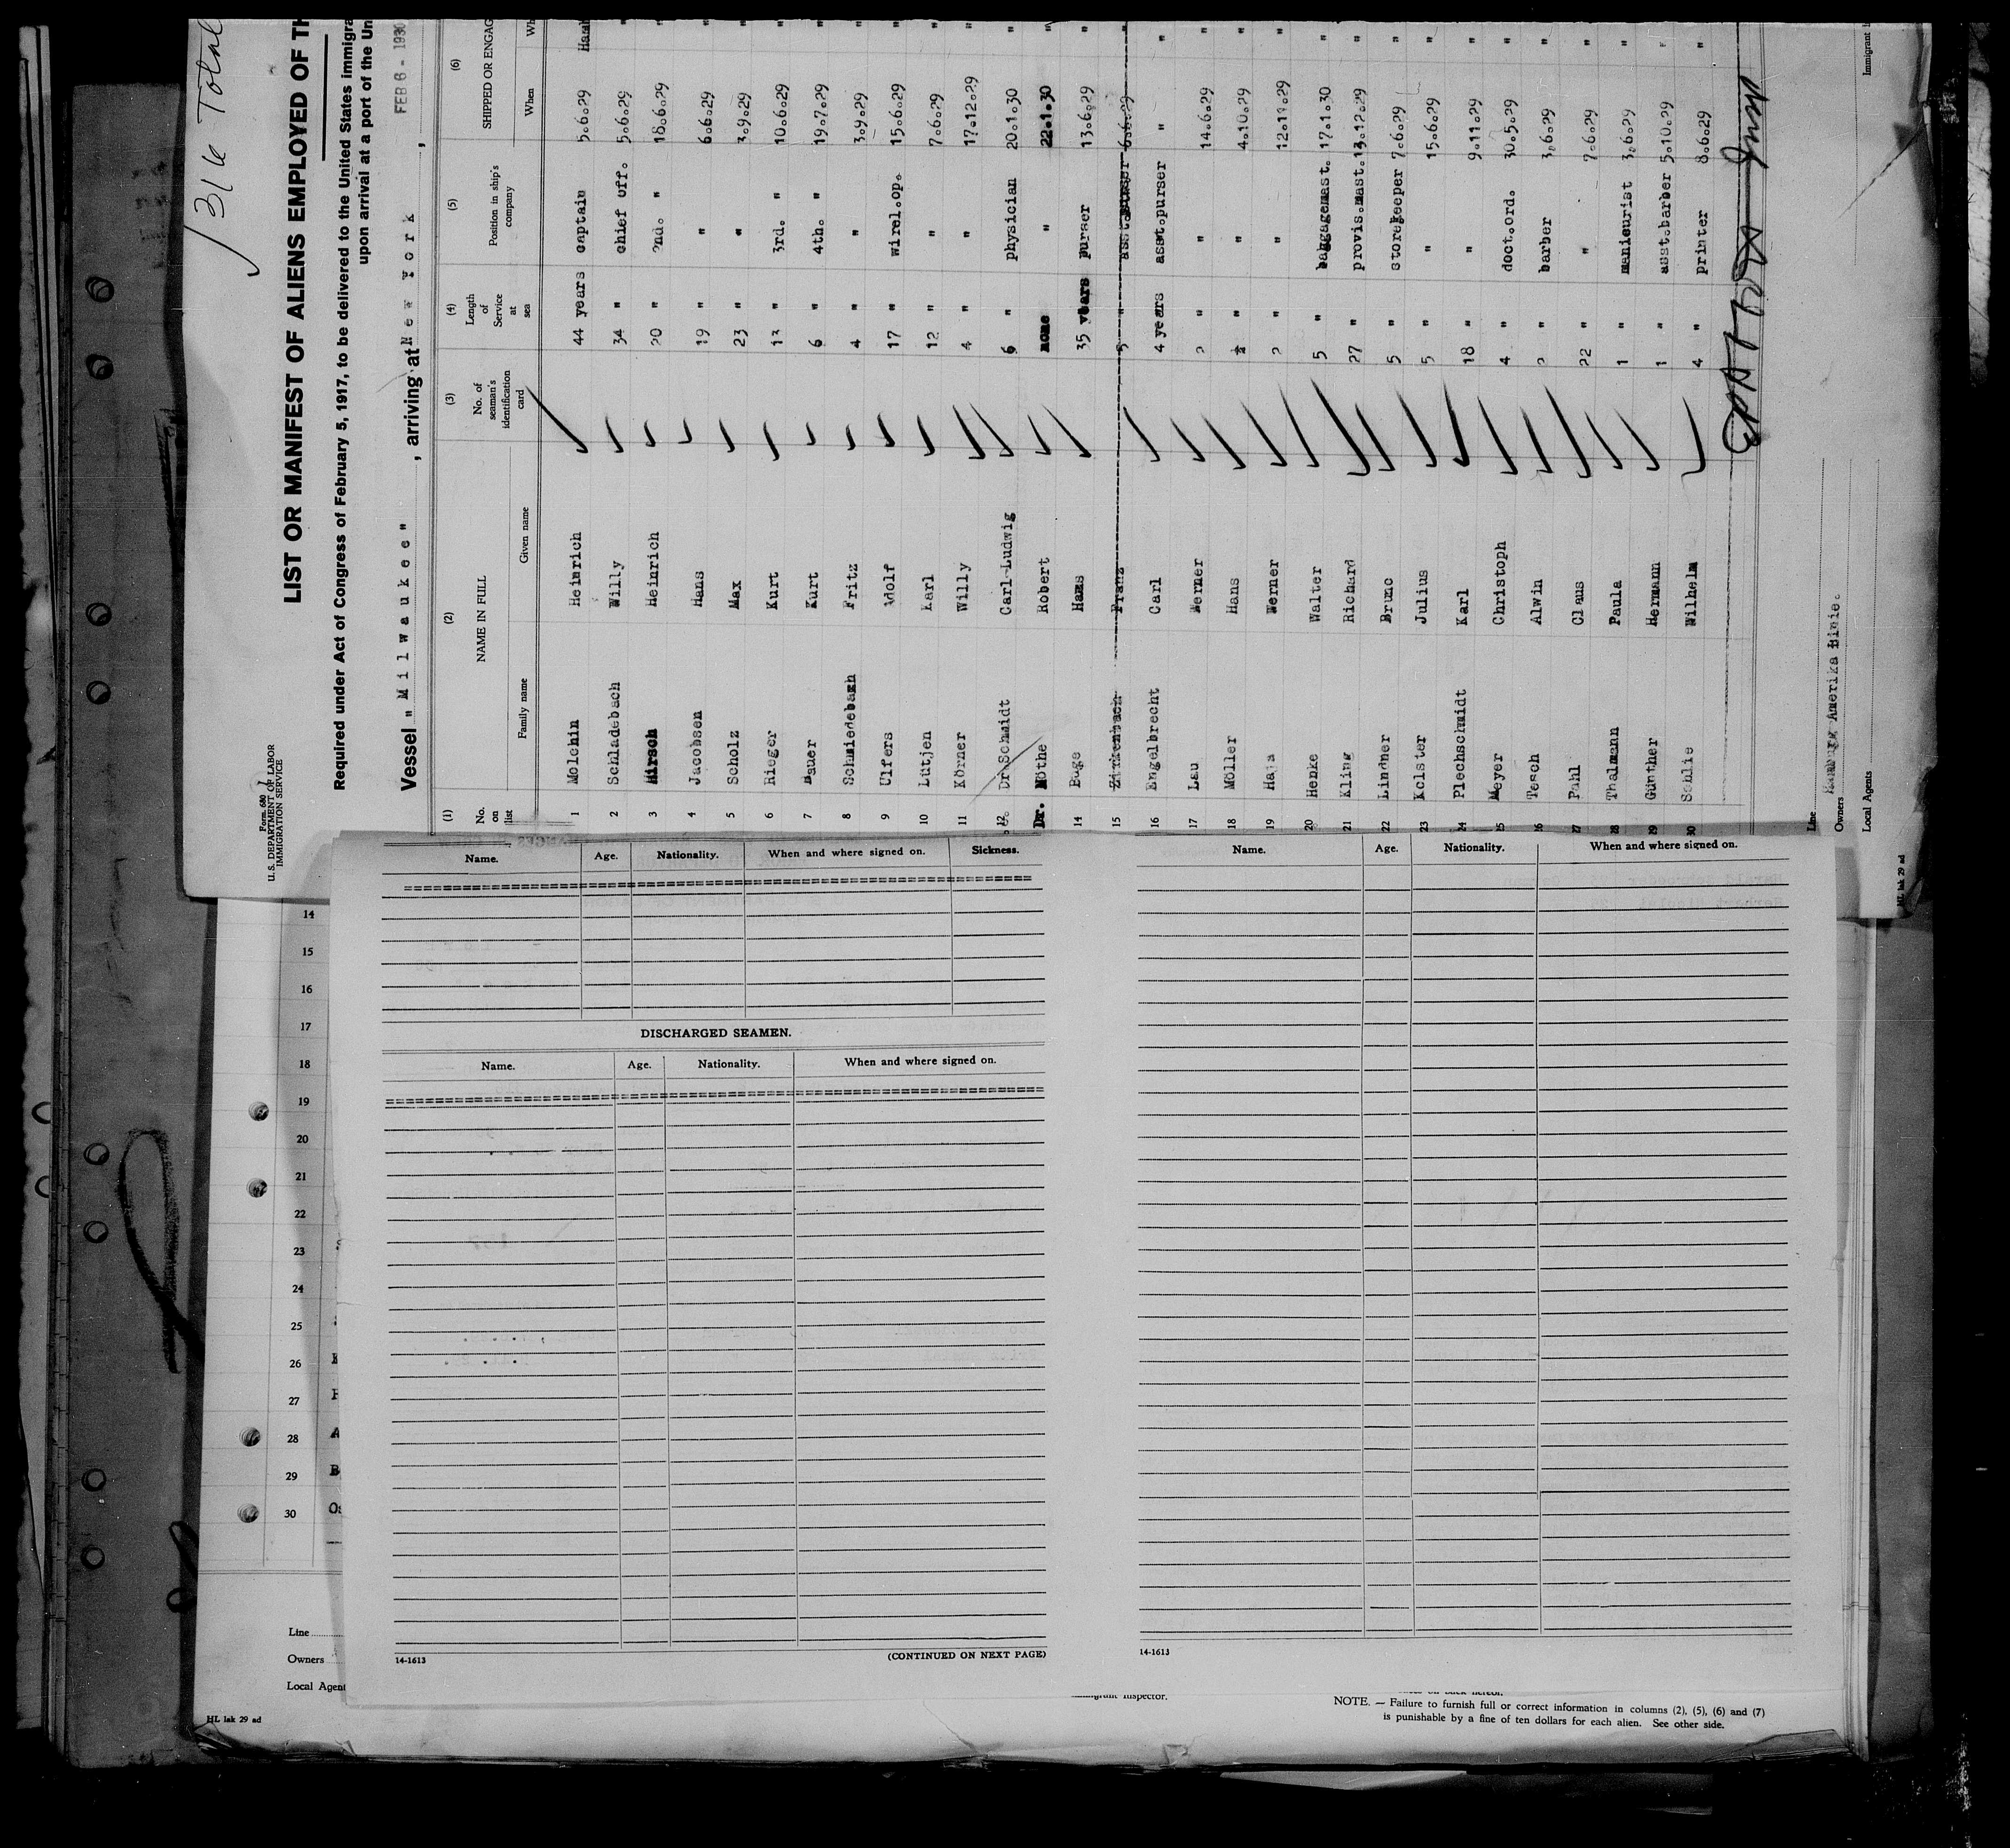 1316 Total
Form 680
U.S. DEPARTMENT OF LABOR
IMMIGRATION SERVICE
LIST OR MANIFEST OF ALIENS EMPLOYED OF TH
Required under Act of Congress of February 5, 1917, to be delivered to the United States immigra
upon arrival at a port of the Un
Vessel " Milwaukee " , arriving at New York , FEB 6 - 1930
(1) (2) (3) (4) (5) (6)
No. on list NAME IN FULL Family name Given name No. of seaman's identification card Length of Service at sea Position in ship's company SHIPPED OR ENGAG When Wh
1 Molchin Heinrich 44 years captain 5.6.29 Hamb
2 Schladebach Willy 34 " chief off. 5.6.29 "
3 Hirsch Heinrich 20 " 2nd. " 18.6.29 "
4 Jacobsen Hans 19 " " 6.6.29 "
5 Scholz Max 23 " " 3.9.29 "
6 Rieger Kurt 13 " 3rd. " 10.6.29 "
7 Bauer Kurt 6 " 4th. " 19.7.29 "
8 Schmiedebach Fritz 4 " " 3.9.29 "
9 Ulfers Adolf 17 " wirel.op. 15.6.29 "
10 Lütjen Karl 12 " " 7.6.29 "
11 Körner Willy 4 " " 17.12.29 "
12 Dr.Schmidt Carl-Ludwig 6 " physician 20.1.30 "
Dr. Nöthe Robert none " 22.1.30 "
14 Buge Hans 35 years purser 13.6.29 "
15 Franz 5 " asst. 6.6.29 "
16 Engelbrecht Carl 4 years asst.purser " "
17 Lau Werner 2 " " 14.6.29 "
18 Möller Hans ½ " " 4.10.29 "
19 Werner 2 " " "
20 Henke Walter 5 " baggagemast. 17.1.30 "
21 Kling Richard 27 " provis.mast. 13.12.29 "
22 Lindner Bruno 5 " storekeeper 7.6.29 "
23 Kolster Julius 5 " " 15.6.29 "
24 Plechschmidt Karl 18 " " 9.11.29 "
25 Meyer Christoph 4 " doct.ord. 30.5.29 "
26 Tesch Alwin 2 " barber 3.6.29 "
27 Pahl Claus 22 " " 7.6.29 "
28 Thalmann Paula 1 " manicurist 3.6.29 "
29 Günther Hermann 1 " asst.barber 5.10.29 "
30 Wilhelm 4 " printer 8.6.29 "
Line
Owners Hamburg Amerika Linie.
Local Agents
Immigrant I
HL lak 29 ad
Name. Age. Nationality. When and where signed on. Sickness.
DISCHARGED SEAMEN.
Name. Age. Nationality. When and where signed on.
14-1613 (CONTINUED ON NEXT PAGE)
Name. Age. Nationality. When and where signed on.
14-1613
14
15
16
17
18
19
20
21
22
23
24
25
26
27
28
29
30
Line
Owners
Local Agent
HL lak 29 ad
Inspector.
NOTE. — Failure to furnish full or correct information in columns (2), (5), (6) and (7)
is punishable by a fine of ten dollars for each alien. See other side.